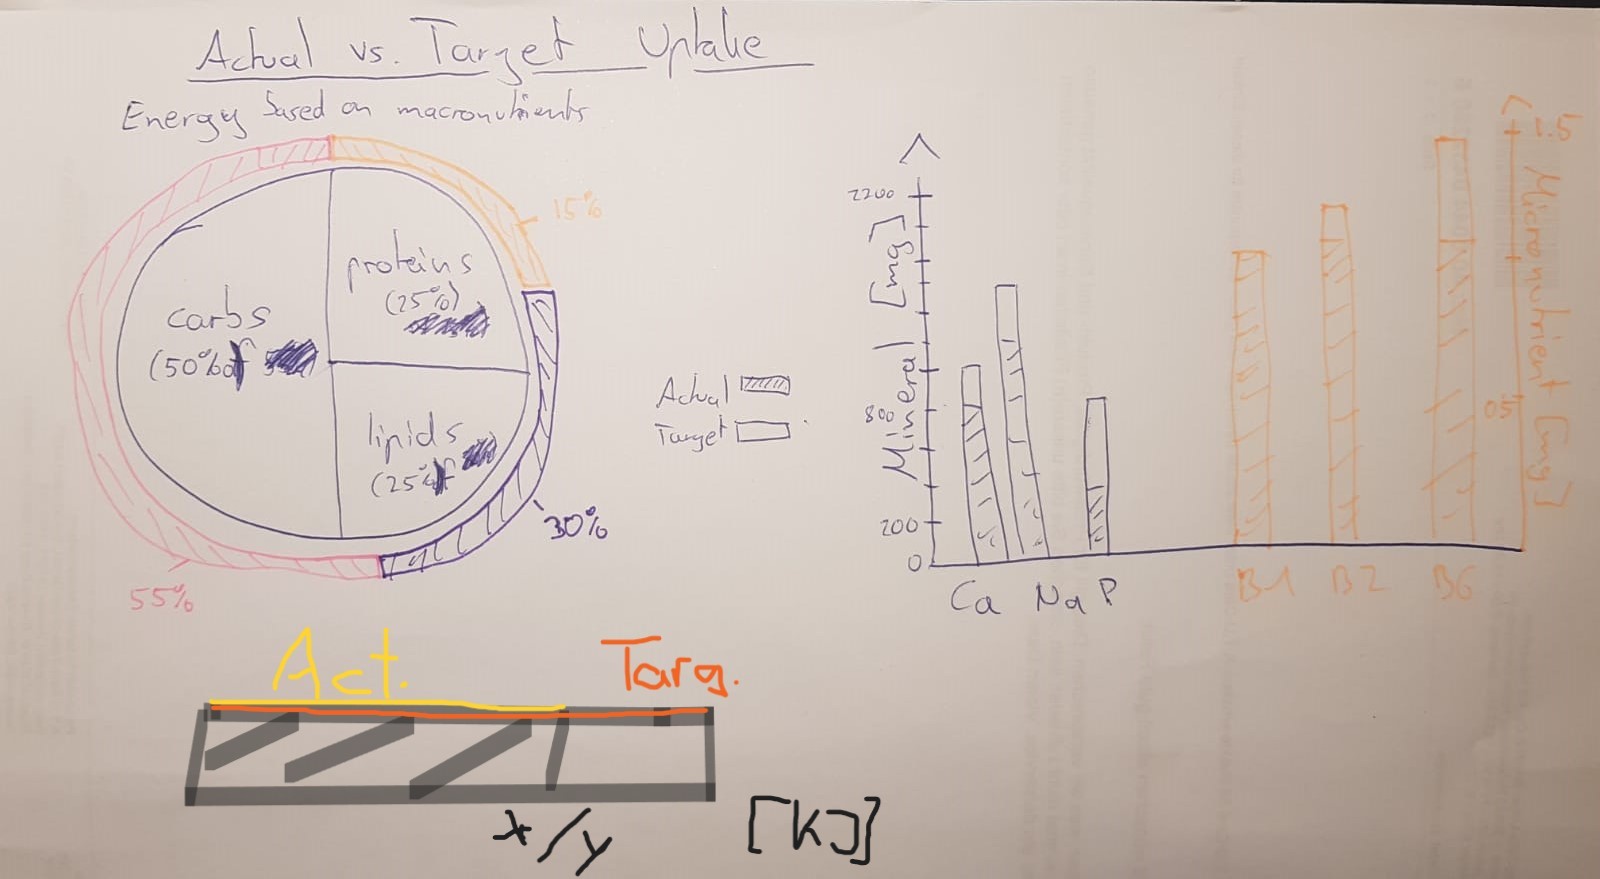 Actual vs. Target Uptake
Energy based on macronutrients
15%
proteins
(25%)
carbs
(50%
lipids
(25%
30%
55%
Actual
Target
2200
800
200
0
Mineral [mg]
Ca Na P
B1 B2 B6
1.5
0.5
Micronutrient [mg]
Act.
Targ.
x/y [kJ]